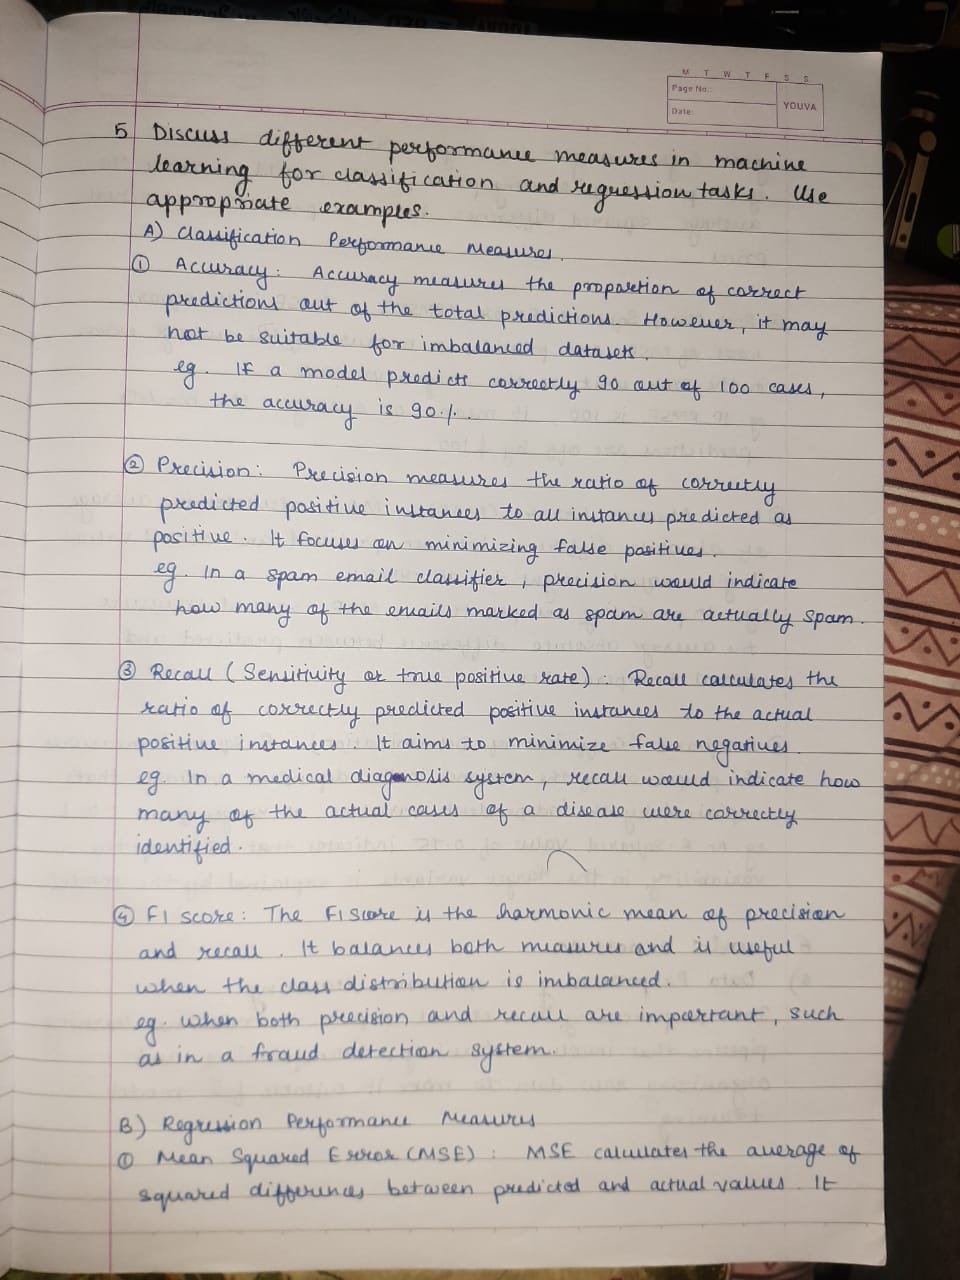 M T W T F S S
Page No.:
Date:
YOUVA
5 Discuss different performance measures in machine
learning for classification and regression tasks. Use
appropriate examples.
A) Classification Performance Measures.
① Accuracy: Accuracy measures the proportion of correct
predictions out of the total predictions. However, it may
not be suitable for imbalanced datasets.
eg. If a model predicts correctly 90 out of 100 cases,
the accuracy is 90%.
② Precision: Precision measures the ratio of correctly
predicted positive instances to all instances predicted as
positive. It focuses on minimizing false positives.
eg. In a spam email classifier, precision would indicate
how many of the emails marked as spam are actually spam.
③ Recall (Sensitivity or true positive rate): Recall calculates the
ratio of correctly predicted positive instances to the actual
positive instances. It aims to minimize false negatives.
eg. In a medical diagnosis system, recall would indicate how
many of the actual cases of a disease were correctly
identified.
④ F1 score: The F1 score is the harmonic mean of precision
and recall. It balances both measures and is useful
when the class distribution is imbalanced.
eg. when both precision and recall are important, such
as in a fraud detection system.
B) Regression Performance Measures
① Mean Squared Error (MSE): MSE calculates the average of
squared differences between predicted and actual values. It